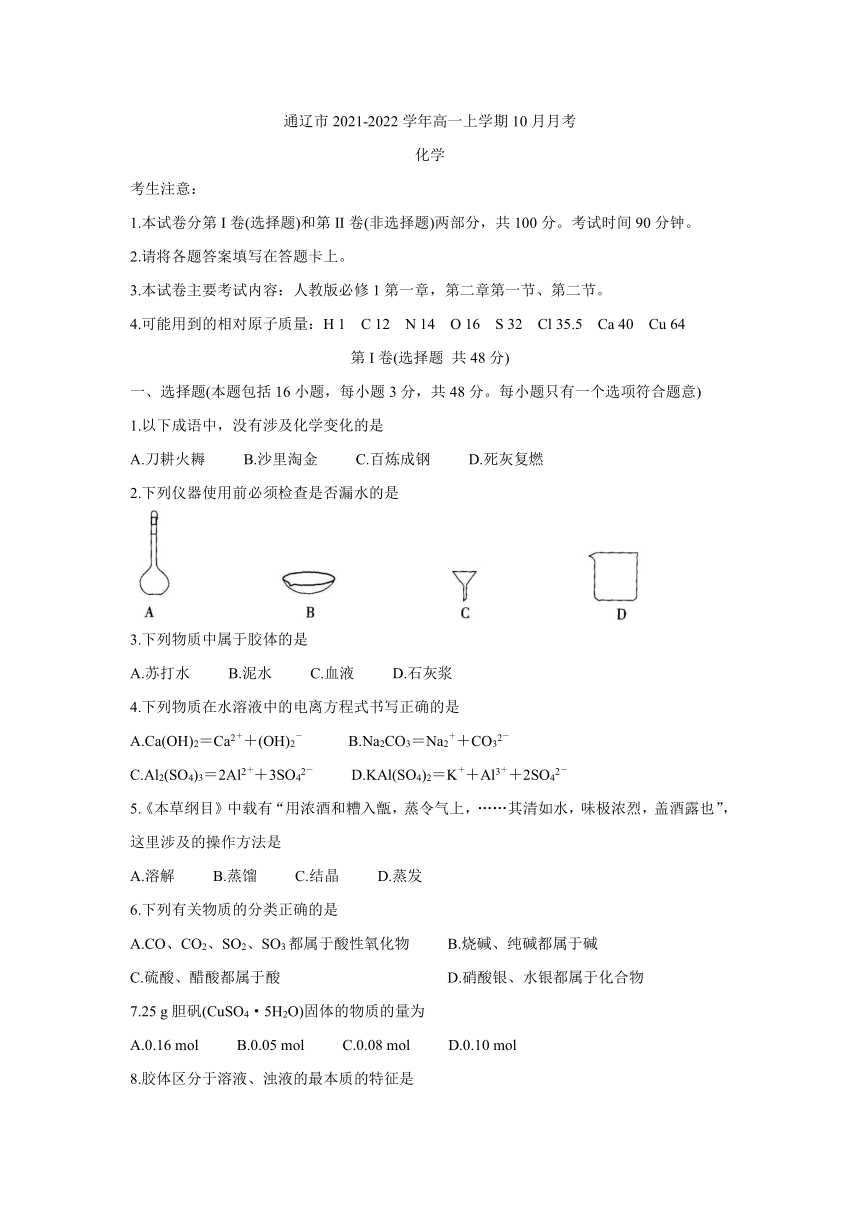 通辽市2021-2022学年高一上学期10月月考
化学
考生注意：
1.本试卷分第I卷(选择题)和第II卷(非选择题)两部分，共100分。考试时间90分钟。
2.请将各题答案填写在答题卡上。
3.本试卷主要考试内容：人教版必修1第一章，第二章第一节、第二节。
4.可能用到的相对原子质量：H 1　C 12　N 14　O 16　S 32　Cl 35.5　Ca 40　Cu 64
第I卷(选择题 共48分)
一、选择题(本题包括16小题，每小题3分，共48分。每小题只有一个选项符合题意)
1.以下成语中，没有涉及化学变化的是
A.刀耕火耨　　B.沙里淘金　　C.百炼成钢　　D.死灰复燃
2.下列仪器使用前必须检查是否漏水的是
A　　B　　C　　D
3.下列物质中属于胶体的是
A.苏打水　　B.泥水　　C.血液　　D.石灰浆
4.下列物质在水溶液中的电离方程式书写正确的是
A.Ca(OH)₂＝Ca²⁺＋(OH)₂⁻　　B.Na₂CO₃＝Na₂⁺＋CO₃²⁻
C.Al₂(SO₄)₃＝2Al²⁺＋3SO₄²⁻　　D.KAl(SO₄)₂＝K⁺＋Al³⁺＋2SO₄²⁻
5.《本草纲目》中载有“用浓酒和糟入甑，蒸令气上，……其清如水，味极浓烈，盖酒露也”，
这里涉及的操作方法是
A.溶解　　B.蒸馏　　C.结晶　　D.蒸发
6.下列有关物质的分类正确的是
A.CO、CO₂、SO₂、SO₃都属于酸性氧化物　　B.烧碱、纯碱都属于碱
C.硫酸、醋酸都属于酸　　D.硝酸银、水银都属于化合物
7.25 g胆矾(CuSO₄·5H₂O)固体的物质的量为
A.0.16 mol　　B.0.05 mol　　C.0.08 mol　　D.0.10 mol
8.胶体区分于溶液、浊液的最本质的特征是